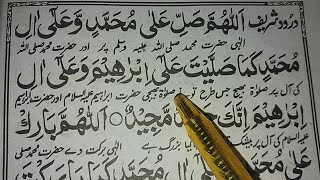 درود شریف اَللّٰهُمَّ صَلِّ عَلٰی مُحَمَّدٍ وَّعَلٰی اٰلِ
الٰہی حضرت محمد صلی اللہ علیہ وسلم پر اور حضرت محمد صلی اللہ
مُحَمَّدٍ كَمَا صَلَّيْتَ عَلٰی اِبْرٰهِيْمَ وَعَلٰی اٰلِ
کی آل پر صلوٰۃ بھیج جس طرح تو نے صلوٰۃ بھیجی حضرت ابراہیم علیہ السلام اور حضرت ابراہیم
اِبْرٰهِيْمَ اِنَّكَ حَمِيْدٌ مَّجِيْدٌ اَللّٰهُمَّ بَارِكْ
علیہ السلام کی آل پر بیشک بزرگ ہے الٰہی برکت دے حضرت محمد صلی
عَلٰی مُحَمَّدٍ كَمَا